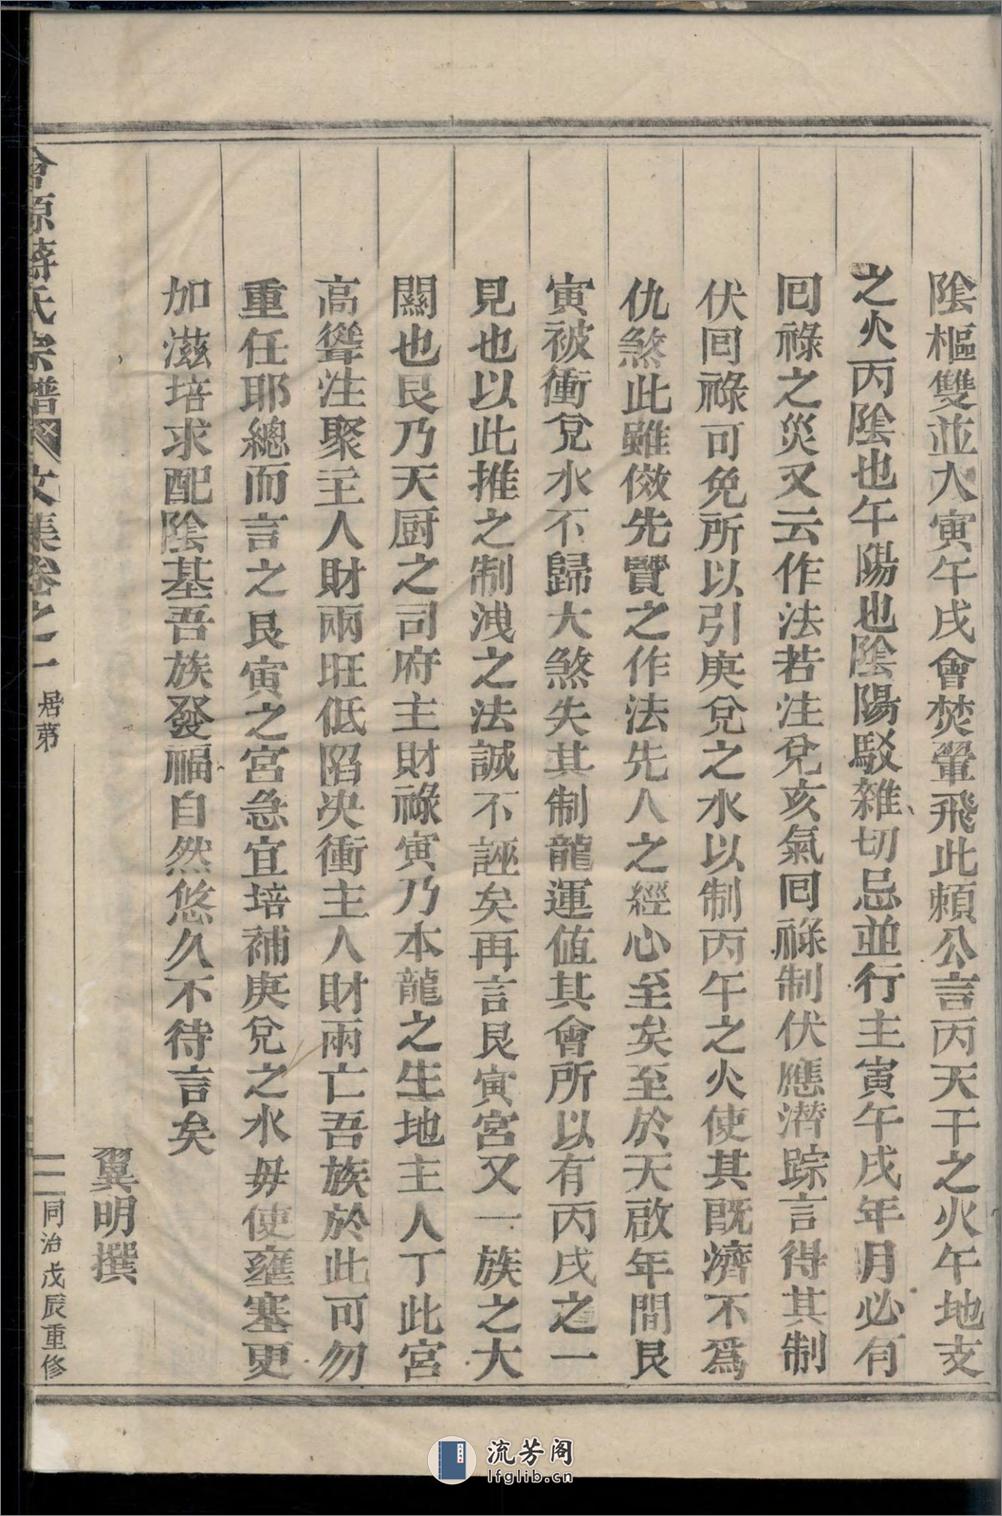 陰樞雙並大寅午戌會焚翬飛此賴公言丙天干之火午地支
之火丙陰也午陽也陰陽駁雜切忌並行主寅午戌年月必有
回祿之災又云作法若注兌亥氣回祿制伏應潜踪言得其制
伏回祿可免所以引庚兌之水以制丙午之火使其既濟不爲
仇煞此雖倣先賢之作法先人之經心至矣至於天啟年間艮
寅被衝兌水不歸大煞失其制龍運值其會所以有丙戌之一
見也以此推之制洩之法誠不誣矣再言艮寅宮又一族之大
關也艮乃天厨之司府主財祿寅乃本龍之生地主人丁此宮
高聳注聚主人財兩旺低陷决衝主人財兩亡吾族於此可勿
重任耶總而言之艮寅之宮急宜培補庚兌之水毋使壅塞更
加滋培求配陰基吾族發福自然悠久不待言矣
翼明撰
氏宗譜 文集卷之一 居第 二 同治戊辰重修
流芳阁
lfglib.cn